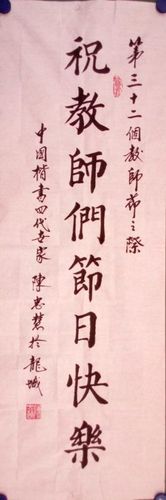 第三十二個教師節之際
祝教師們節日快樂
中國楷書四代世家 陳忠慧於龍城